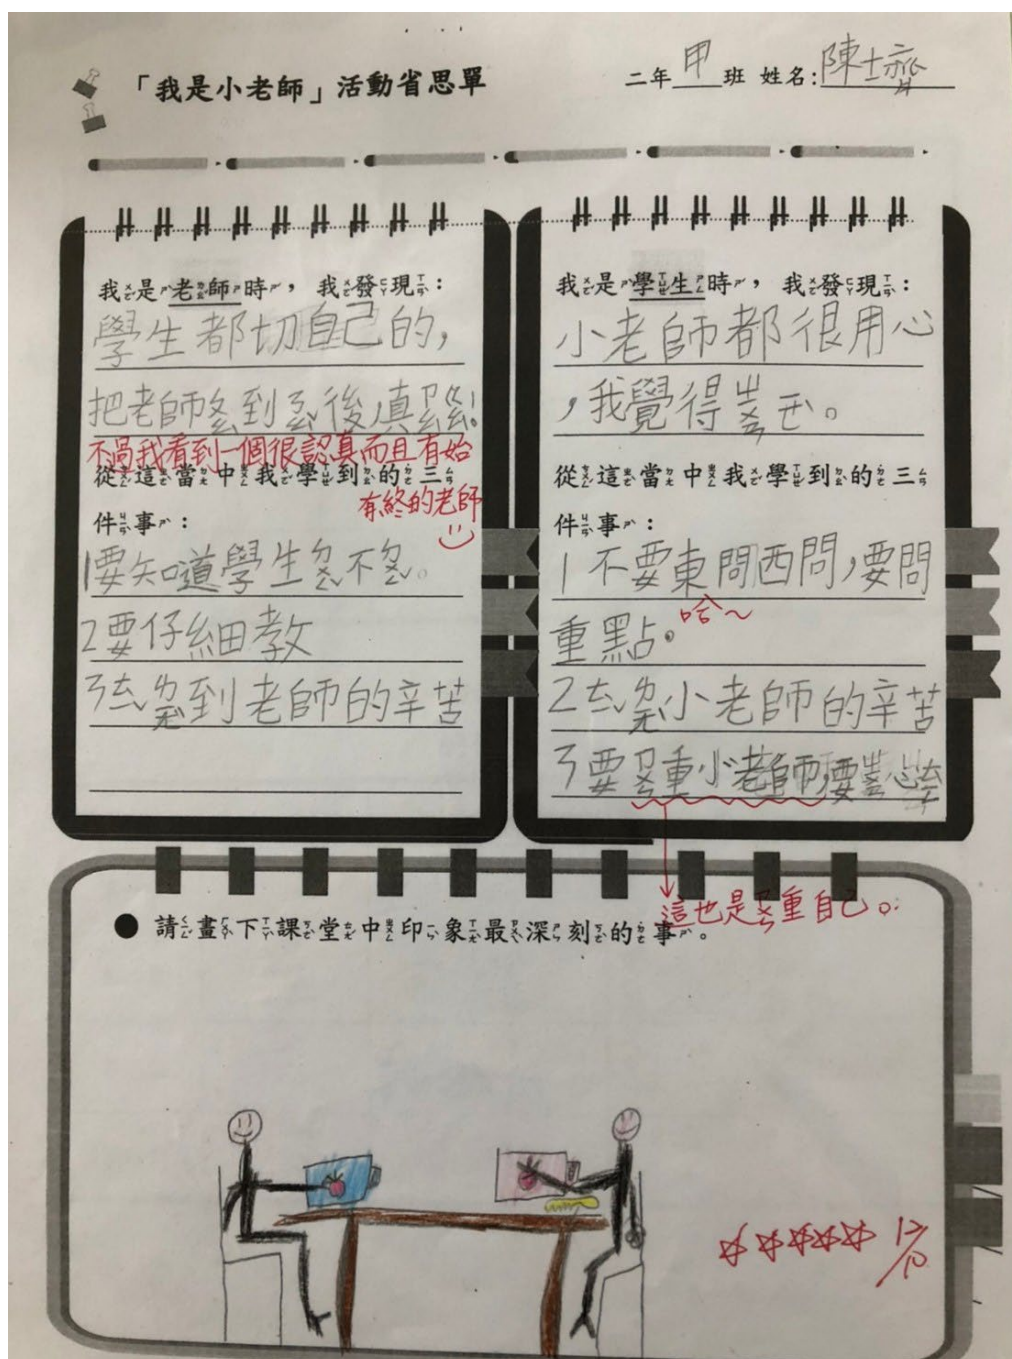 「我是小老師」活動省思單
二年甲班 姓名:陳士齊
我是老師時，我發現：
學生都切自己的，
把老師ㄌㄠˋ到ㄗㄨㄟˋ後,真
不過我看到一個很認真而且有始
有終的老師
從這當中我學到的三
件事：
1要知道學生ㄉㄨㄥˇ不ㄉㄨㄥˇ。
2要仔細教
3ㄊㄧˇㄌㄧㄤˋ到老師的辛苦
我是學生時，我發現：
小老師都很用心
，我覺得
從這當中我學到的三
件事：
1不要東問西問,要問
重點。
哈~
小老師的辛苦
3要ㄗㄨㄣ重小老師,要
這也是ㄗㄨㄣ重自己。
●請畫下課堂中印象最深刻的事。
12/10